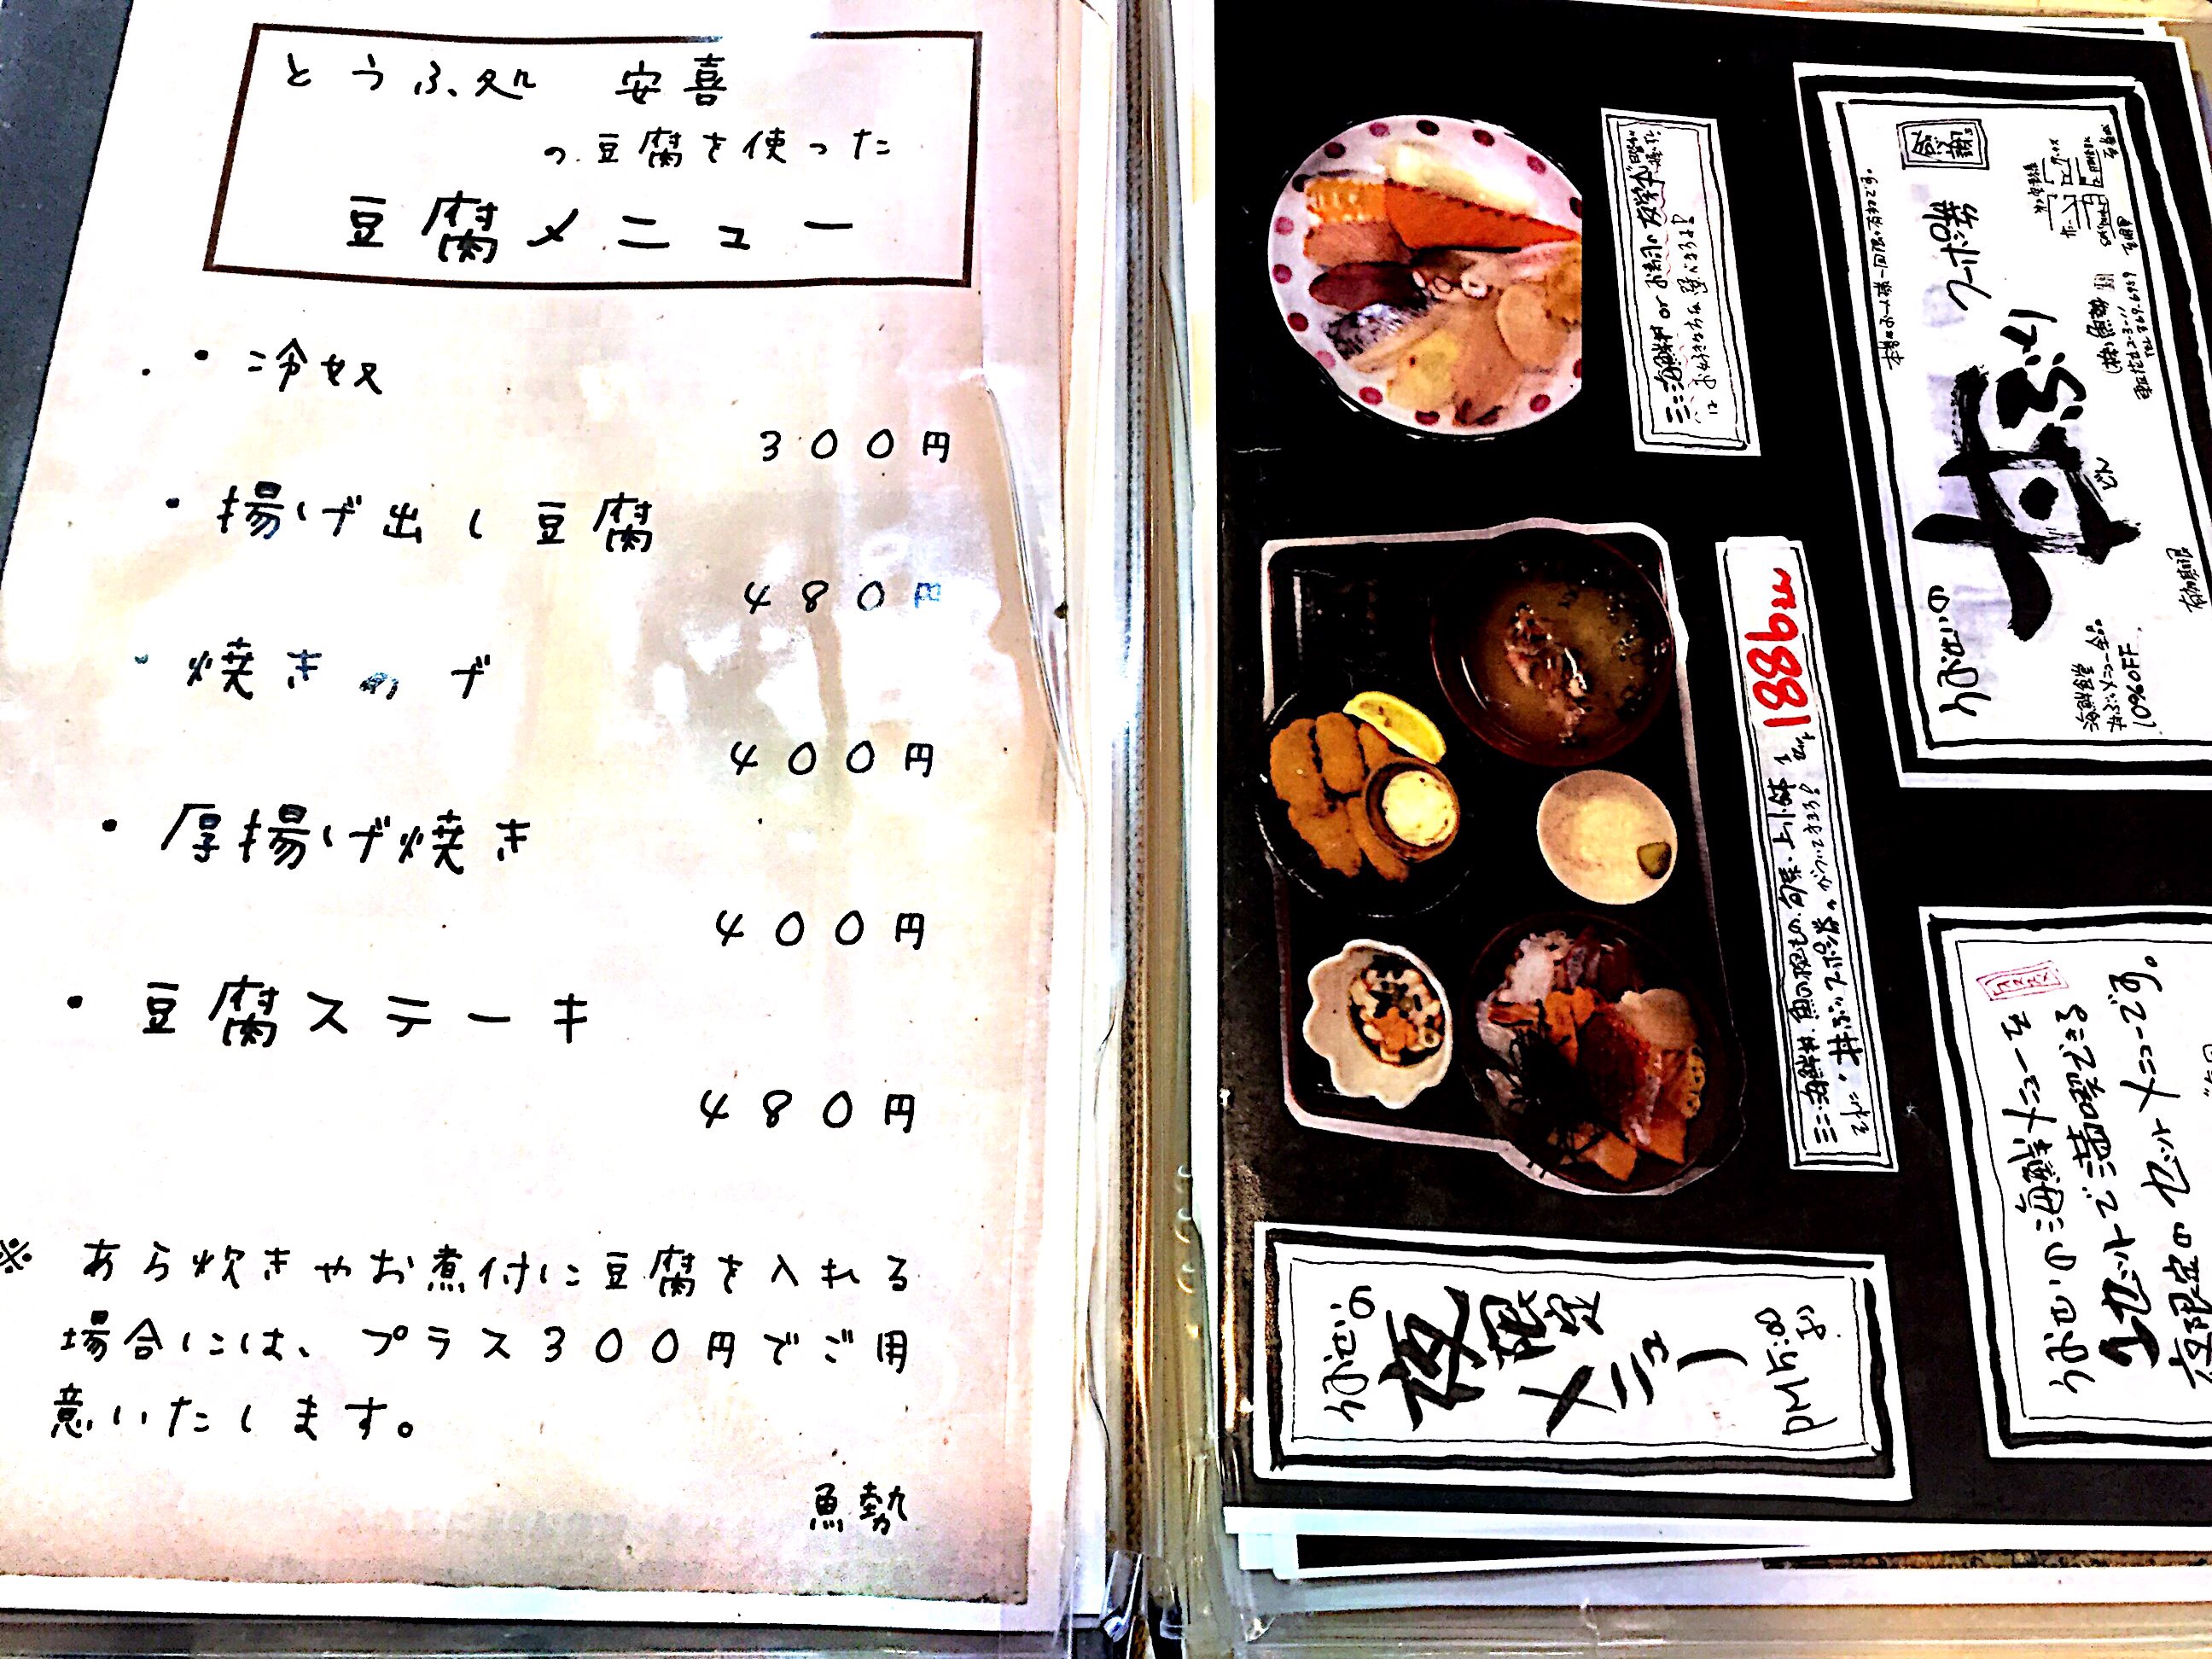 とうふ処 安喜
の豆腐を使った
豆腐メニュー
・冷奴
300円
・揚げ出し豆腐
480円
・焼きあげ
400円
・厚揚げ焼き
400円
・豆腐ステーキ
480円
※ あら炊きやお煮付に豆腐を入れる
場合には、プラス300円でご用
意いたします。
魚勢
うおせいの
夜限定
メニュー
PM5:00
ミニ海鮮丼 or お寿司
ミニ海鮮丼、魚の揚もの、旬菜、上小鉢
丼ぶりクーポン券
うおせいの
丼ぶり
どん
クーポン券
海鮮食堂
丼ぶりメニュー全品
10%OFF
有効期限
うおせいの海鮮メニューを
1セットで満喫できる
夜限定のセットメニューです。